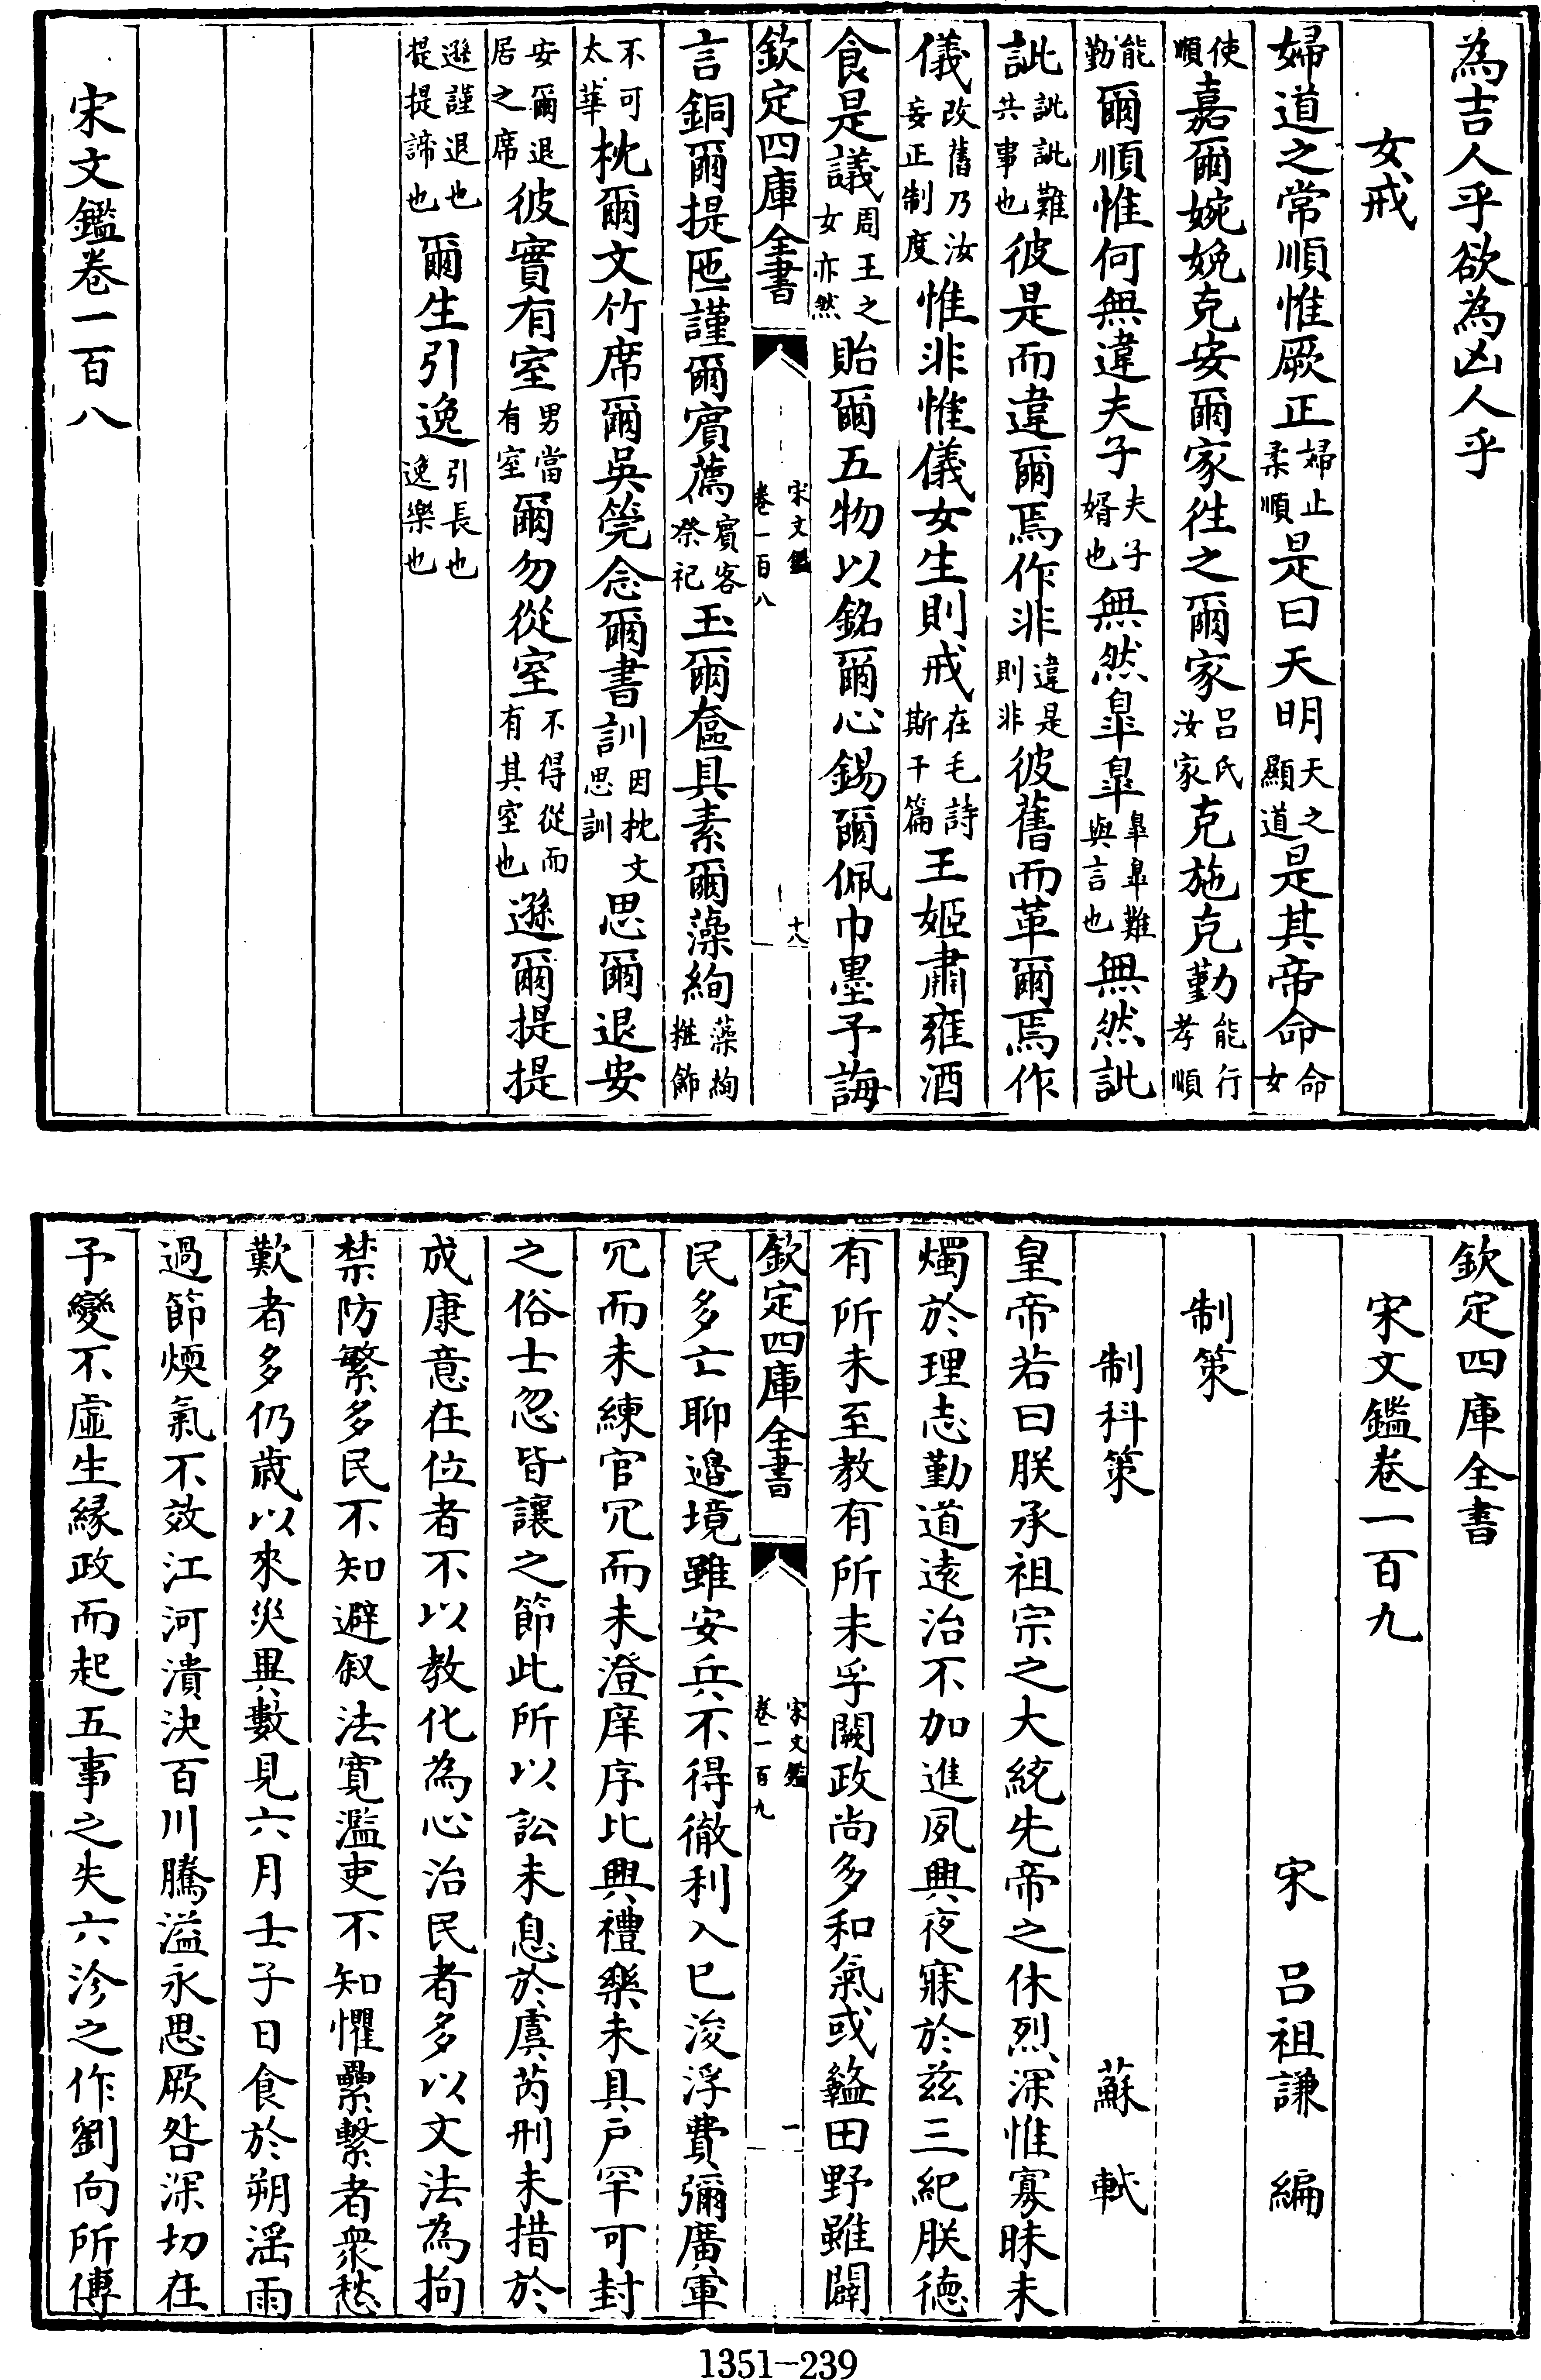 為吉人乎欲為凶人乎
女戒
婦道之常順惟厥正婦止柔順是曰天明天之顯道是其帝命命女
使順嘉爾婉娩克安爾家徃之爾家呂氏汝家克施克勤能行孝順
能勤爾順惟何無違夫子夫子婿也無然臯臯臯臯難與言也無然訿
訿訿訿難共事也彼是而違爾焉作非違是則非彼舊而革爾焉作
儀改舊乃汝妄正制度惟非惟儀女生則戒在毛詩斯干篇王姬肅雍酒
食是議周王之女亦然貽爾五物以銘爾心錫爾佩巾墨予誨
欽定四庫全書 宋文鑑卷一百八 十八
言銅爾提匜謹爾賓薦賓客祭祀玉爾奩具素爾藻絢藻絢粧飾
不可太華枕爾文竹席爾吳筦念爾書訓因枕文思訓思爾退安
安爾退居之席彼實有室男當有室爾勿從室不得從而有其室也遜爾提提
遜謹退也提提諦也爾生引逸引長也逸樂也
宋文鑑卷一百八
欽定四庫全書
宋文鑑卷一百九
宋 呂祖謙 編
制策
制科策 蘇軾
皇帝若曰朕承祖宗之大統先帝之休烈深惟寡昧未
燭於理志勤道遠治不加進夙興夜寐於兹三紀朕徳
有所未至教有所未孚闕政尚多和氣或盭田野雖闢
欽定四庫全書 宋文鑑卷一百九 一
民多亡聊邉境雖安兵不得徹利入已浚浮費彌廣軍
冗而未練官冗而未澄庠序比興禮樂未具戶罕可封
之俗士忽皆讓之節此所以訟未息於虞芮刑未措於
成康意在位者不以教化為心治民者多以文法為拘
禁防繁多民不知避叙法寛濫吏不知懼纍繫者衆愁
歎者多仍歲以來災異數見六月壬子日食於朔滛雨
過節煗氣不效江河潰決百川騰溢永思厥咎深切在
予變不虛生緣政而起五事之失六沴之作劉向所傳
1351-239